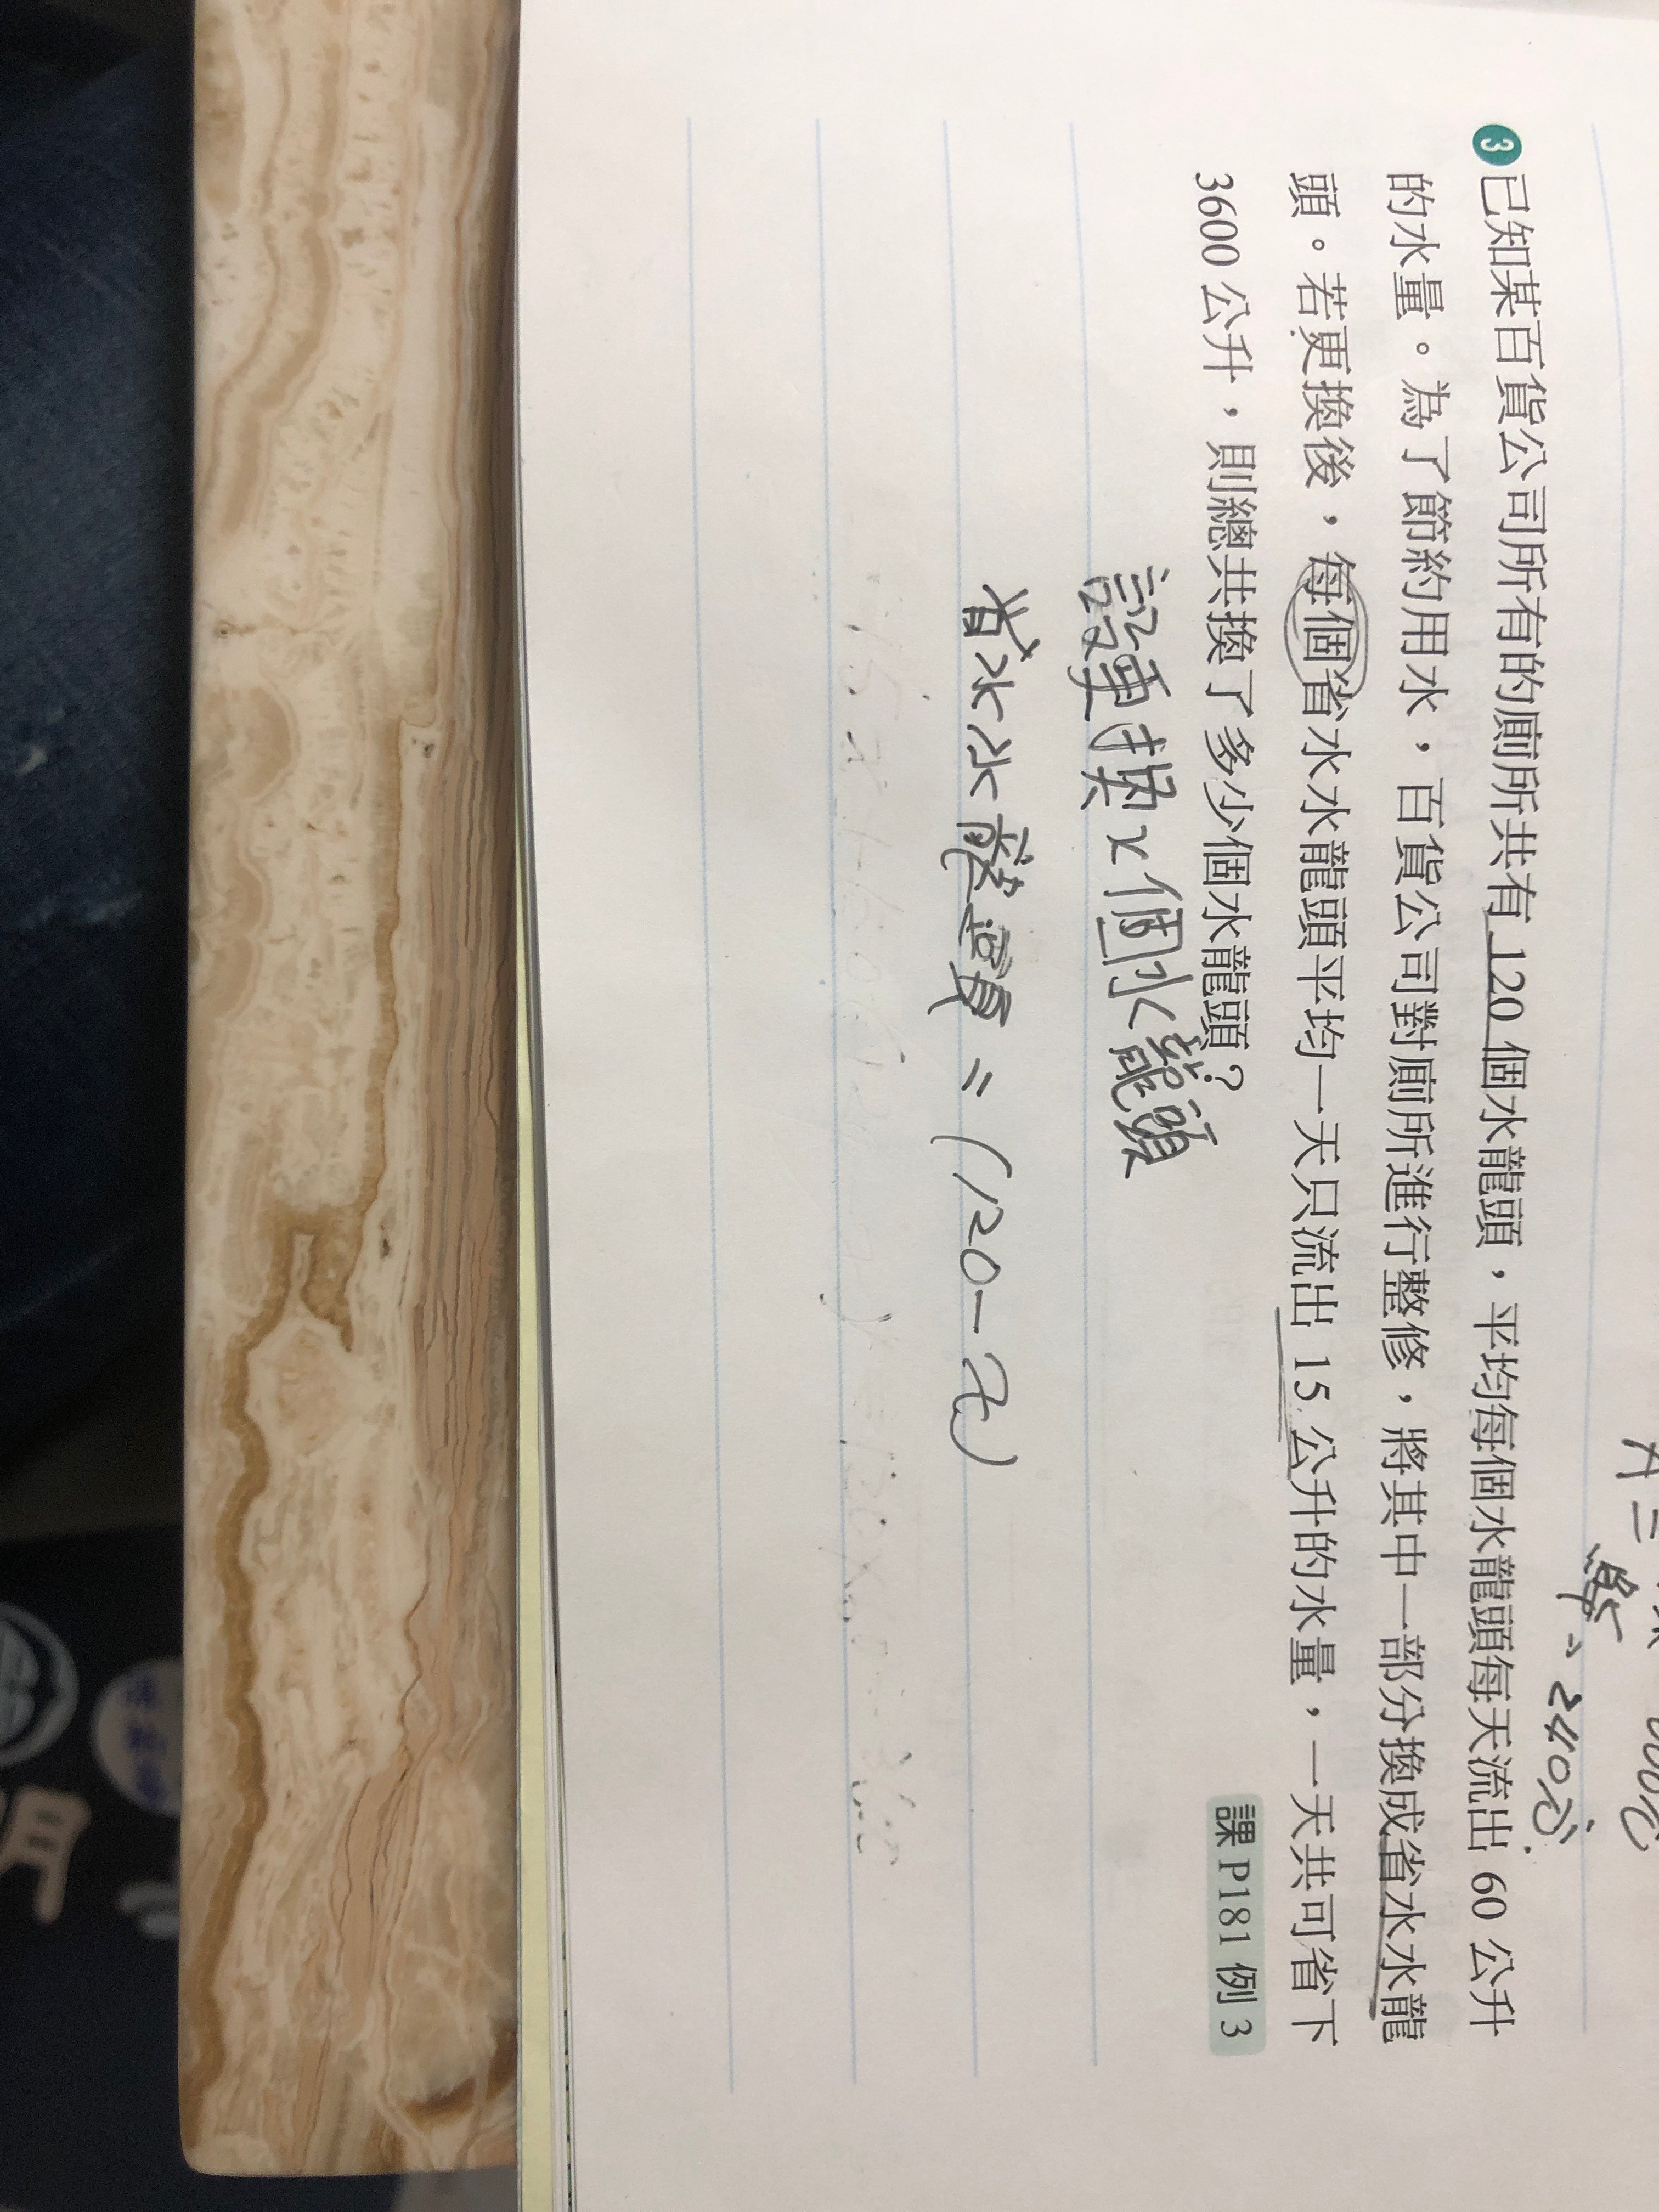 000元
月=
擊、240分
3 已知某百貨公司所有的廁所共有 120 個水龍頭，平均每個水龍頭每天流出 60 公升
的水量。為了節約用水，百貨公司對廁所進行整修，將其中一部分換成省水水龍
頭。若更換後，每個省水水龍頭平均一天只流出 15 公升的水量，一天共可省下
3600 公升，則總共換了多少個水龍頭？
課 P181 例 3
設更換 x 個水龍頭
省水水龍頭 = (120-x)
月